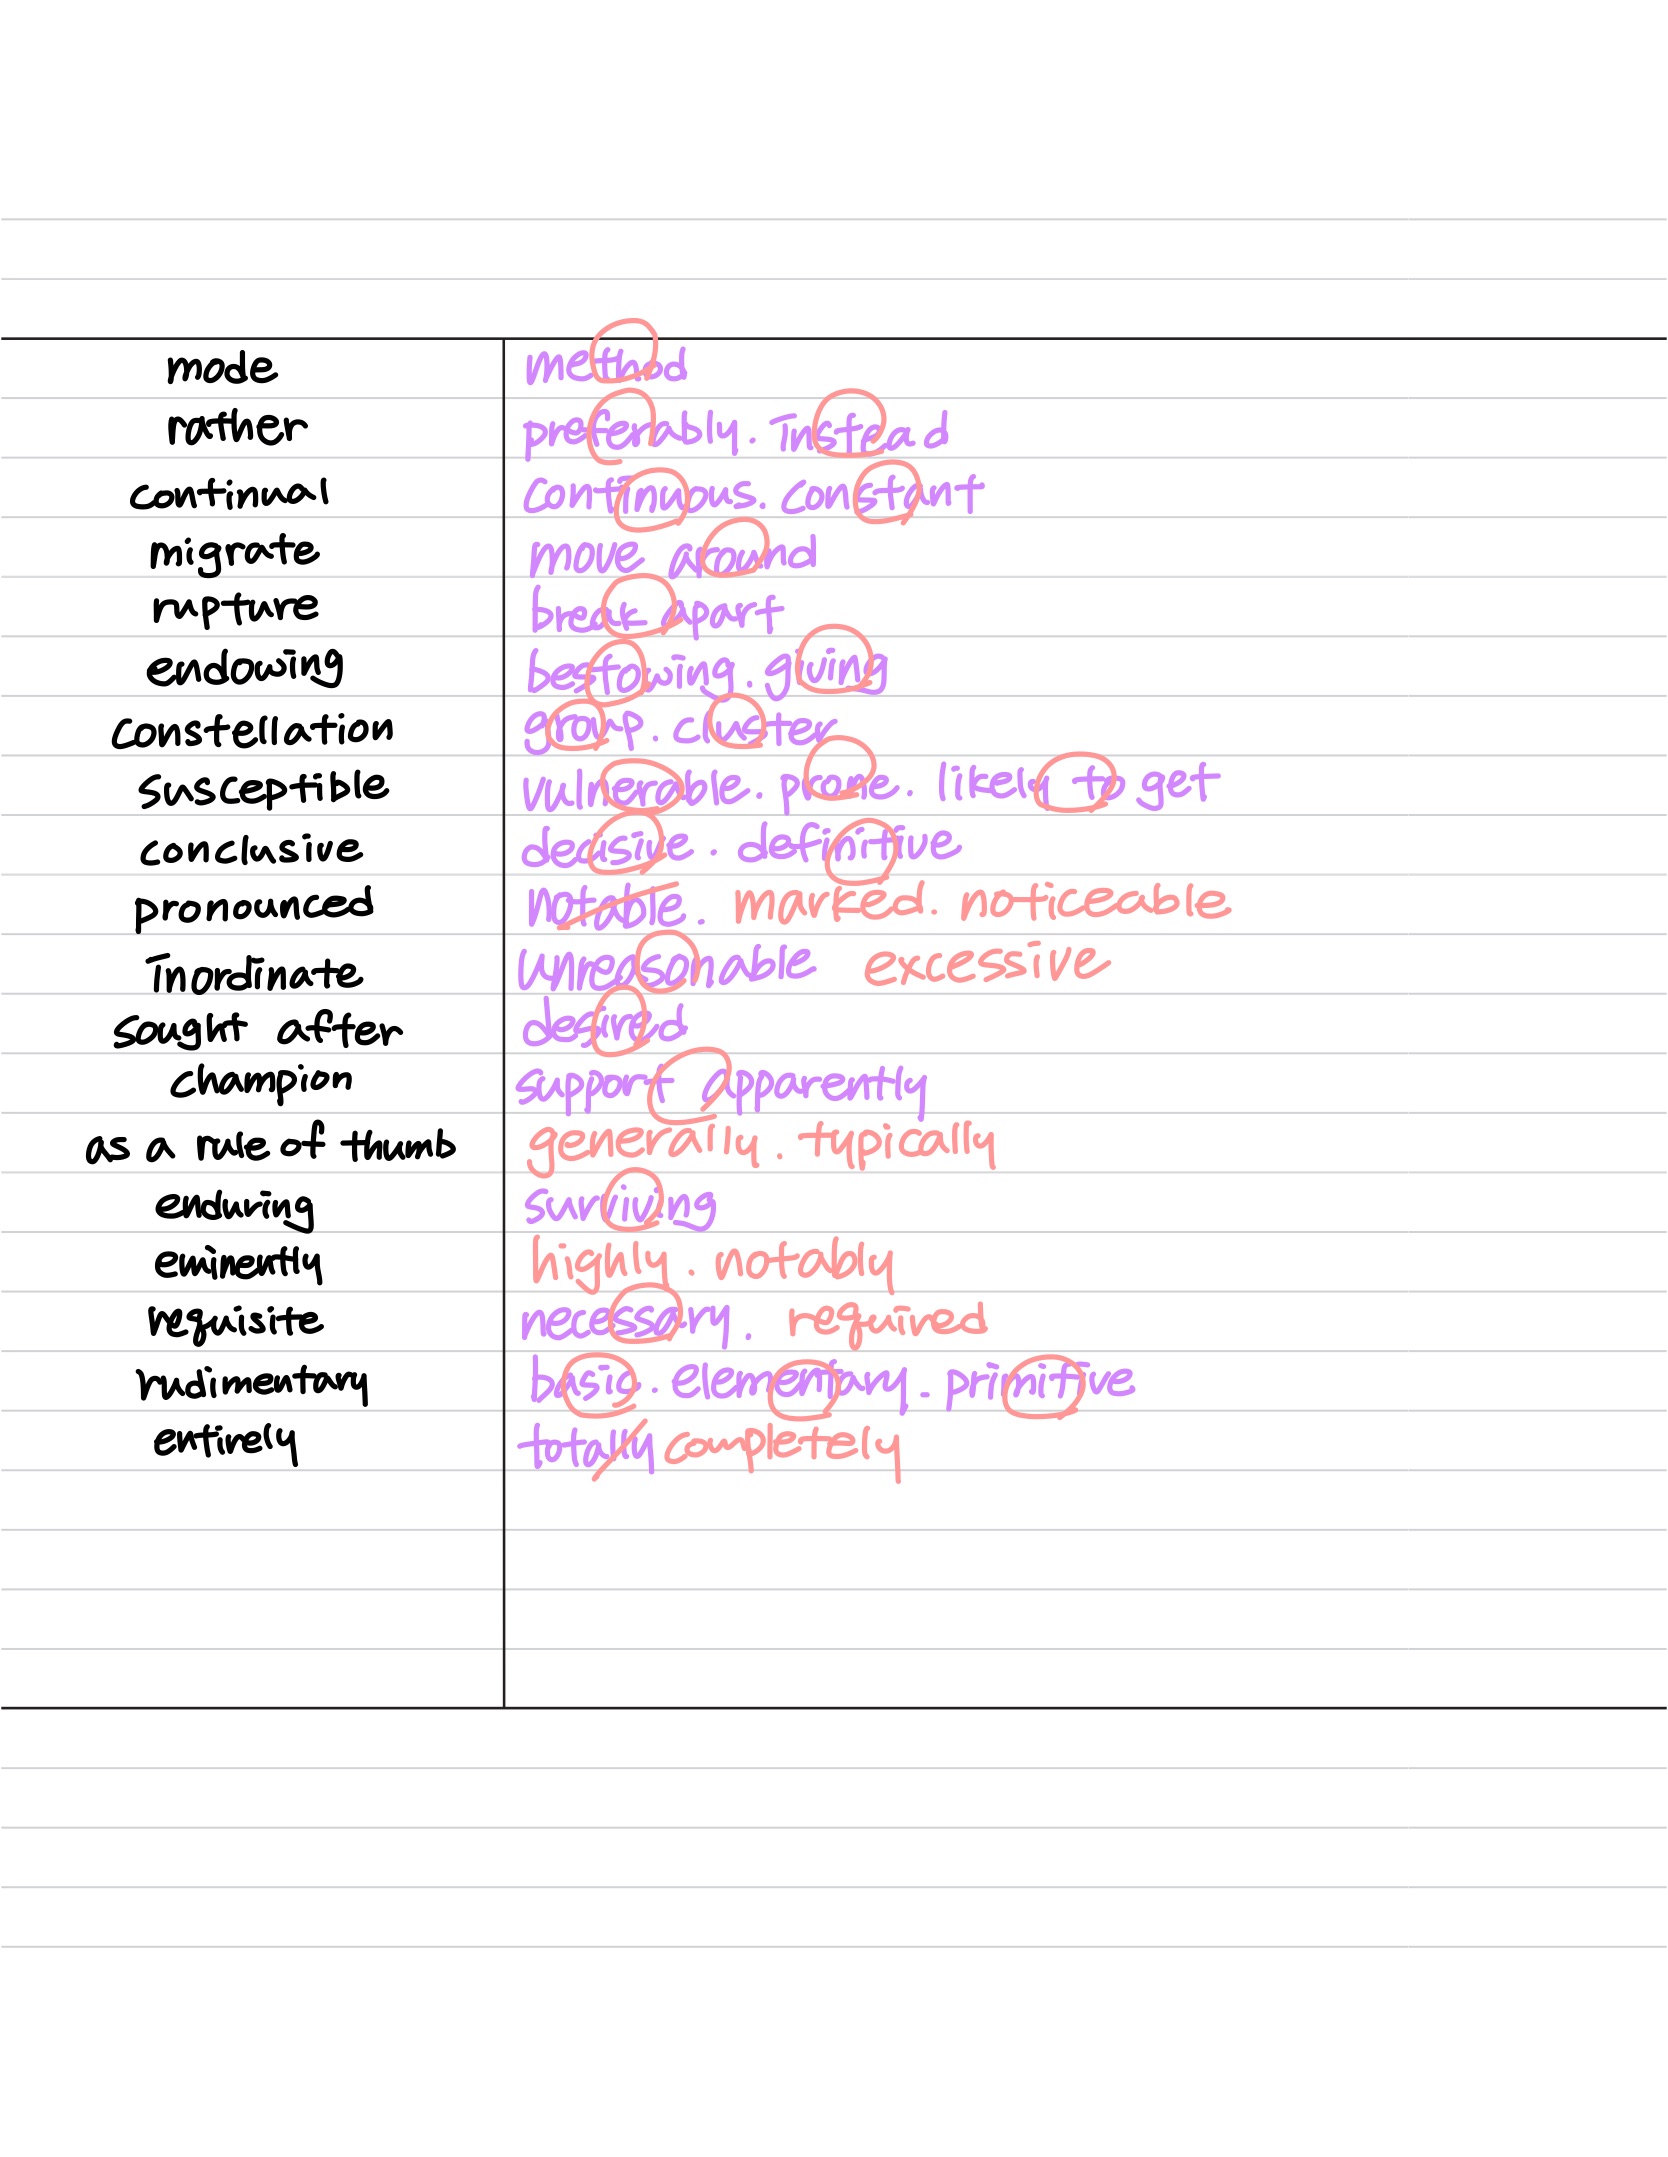 mode method
rather preferably. instead
continual continuous. constant
migrate move around
rupture break apart
endowing bestowing. giving
constellation group. cluster
susceptible vulnerable. prone. likely to get
conclusive decisive. definitive
pronounced notable. marked. noticeable
inordinate unreasonable excessive
sought after desired
champion support apparently
as a rule of thumb generally. typically
enduring surviving
eminently highly. notably
requisite necessary. required
rudimentary basic. elementary. primitive
entirely totally completely